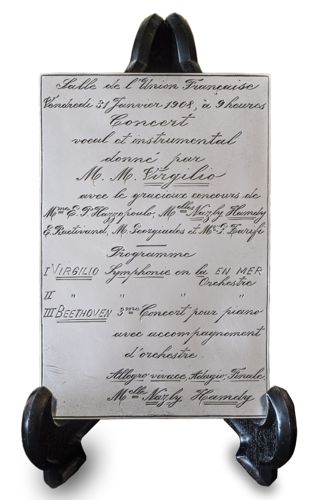 Salle de l'Union Française
Vendredi 31 Janvier 1908, à 9 heures
Concert
vocal et instrumental
donné par
M. M. Virgilio
avec le gracieux concours de
Mme E. P. Hazzopoulo, Melles Nazly Hamdy
E. Ractivand, M. Georgiades et Mr L. Zarifi
Programme
I VIRGILIO Symphonie en la EN MER
Orchestre
II " " " "
III BEETHOVEN 3me Concert pour piano
avec accompagnement
d'orchestre.
Allegro vivace, Adagio, Finale.
Melle Nazly Hamdy